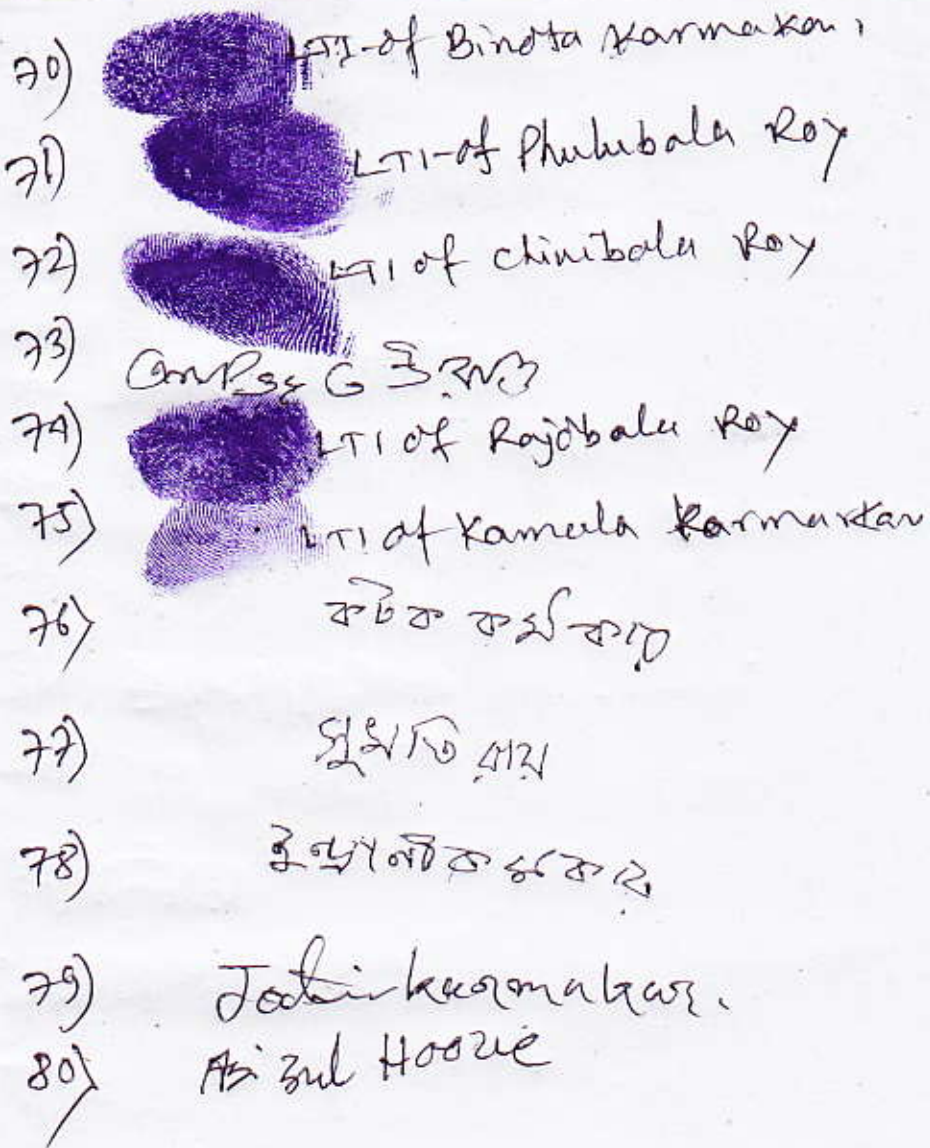 70) LTI-of Binota Karmakar,
71) LTI-of Phulubala Roy
72) LTI of Chinibala Roy
73)
74) LTI of Rajobala Roy
75) LTI of Kamala Karmarkar
76) কটক কর্মকার
77) সুমতি রায়
78) কর্মকার
79) Jotin karmakar.
80) Azizul Hooque